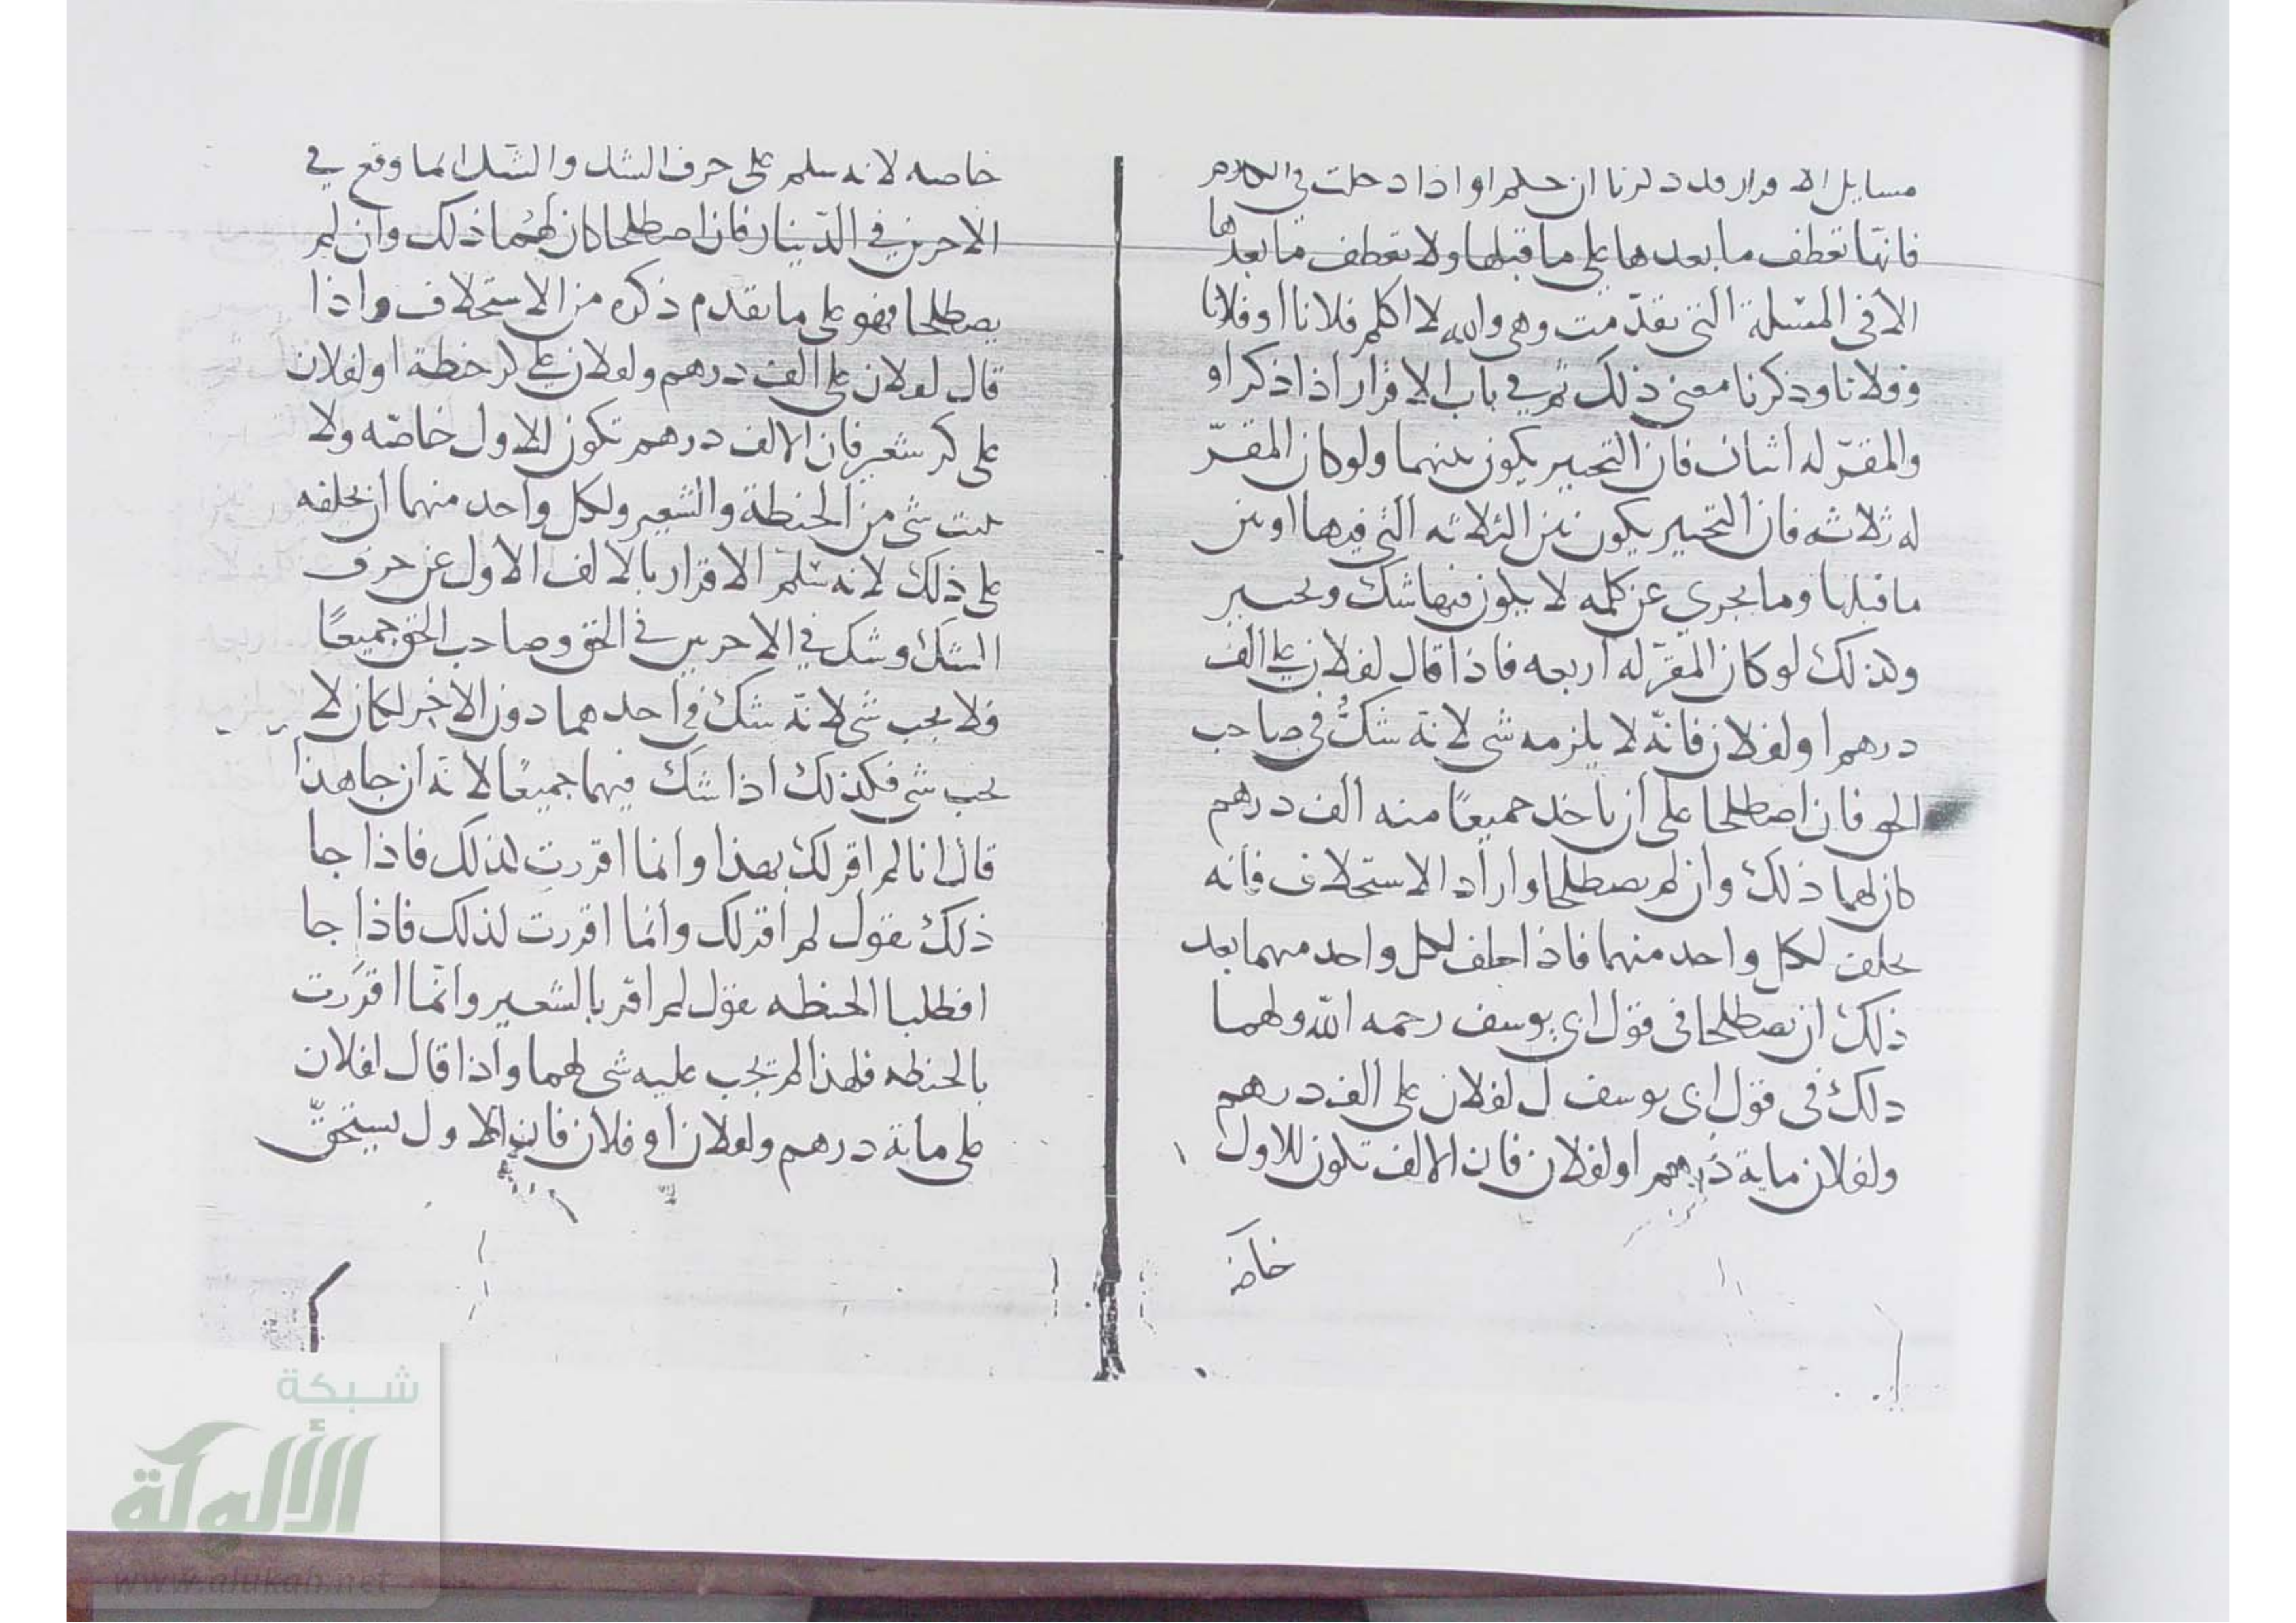 مسايل الاقرار وقد ذكرنا ان حكم او اذا دخلت في الكلام
فانها تعطف ما بعدها على ما قبلها ولا تعطف ما بعدها
الا في المسئلة التي تقدمت وهي والله لا اكلم فلانا او فلانا
وفلانا وذكرنا معنى ذلك ثم في باب الاقرار اذا ذكر او
والمقر له اثنان فان التخيير يكون بينهما ولو كان المقر
له ثلاثه فان التخيير يكون بين الثلاثه التي فيها او بين
ما قبلها وما يجري عن كلمه لا يكون فيها شك وتخيير
وكذلك لو كان المقر له اربعه فاذا قال لفلان علي الف
درهم او لفلان فانه لا يلزمه شى لانه شك في صاحب
الحق فان اصطلحا على ان ياخذ جميعا منه الف درهم
كان لهما ذلك وان لم يصطلحا واراد الاستحلاف فانه
يحلف لكل واحد منهما فاذا حلف لكل واحد منهما بعد
ذلك ان يصطلحا في قول ابي يوسف رحمه الله ولهما
ذلك في قول ابي يوسف ل لفلان علي الف درهم
ولفلان ماية درهم او لفلان فان الالف تكون للاول
خاصه
خاصه لانه سلم على حرف الشك والشك انما وقع في
الاخرين في الدينار فان اصطلحا كان لهما ذلك وان لم
يصطلحا فهو على ما تقدم ذكره من الاستحلاف واذا
قال لفلان علي الف درهم ولفلان علي كر حنطة او لفلان
علي كر شعير فان الالف درهم تكون للاول خاصه ولا
يثبت شى من الحنطة والشعير ولكل واحد منهما ان يحلفه
على ذلك لانه سلم الاقرار بالالف الاول عن حرف
الشك وشك في الاخرين في الحق وصاحب الحق جميعا
فلا يجب شى لانه شك في احدهما دون الاخر لكان لا
يجب شى فكذلك اذا شك فيهما جميعا لانه ان جا هذا
قال انا لم اقر لك بهذا وانما اقررت لذلك فاذا جا
ذلك يقول لم اقر لك وانما اقررت لذلك فاذا جا
افطلبا الحنطه يقول لم اقر بالشعير وانما اقررت
بالحنطه فلهذا لم يجب عليه شى لهما واذا قال لفلان
علي ماية درهم ولفلان او فلان فان الاول يستحق
شبكة
الألوكة
www.alukah.net